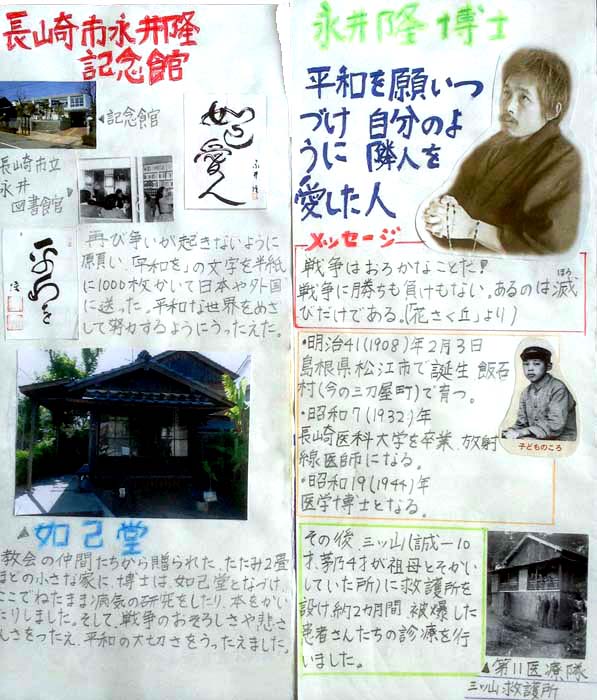 長崎市永井隆
記念館
◀記念館
如己愛人
永井隆
長崎市立
永井
図書館
平和を
隆
再び争いが起きないように
願い、「平和を」の文字を半紙
に1000枚かいて日本や外国
に送った。平和な世界をめざ
して努力するようにうったえた。
▲如己堂
教会の仲間たちから贈られた、たたみ2畳
ほどの小さな家に、博士は、如己堂となづけ、
ここでねたまま病気の研究をしたり、本をかい
たりしました。そして、戦争のおそろしさや悲さ
んさをつたえ、平和の大切さをうったえました。
永井隆博士
平和を願いつ
づけ 自分のよ
うに 隣人を
愛した人
メッセージ
戦争はおろかなことだ!
戦争に勝ちも負けもない。あるのは滅
ほろ
びだけである。(「花さく丘」より)
・明治41(1908)年2月3日
島根県松江市で誕生 飯石
村(今の三刀屋町)で育つ。
・昭和7(1932)年
長崎医科大学を卒業、放射
線医師になる。
・昭和19(1944)年
医学博士となる。
子どものころ
その後、三ッ山(誠一10
才、茅乃4才が祖母とそかい
していた所)に救護所を
設け約2カ月間、被爆した
患者さんたちの診療を行
いました。
▲第11医療隊
三ッ山救護所